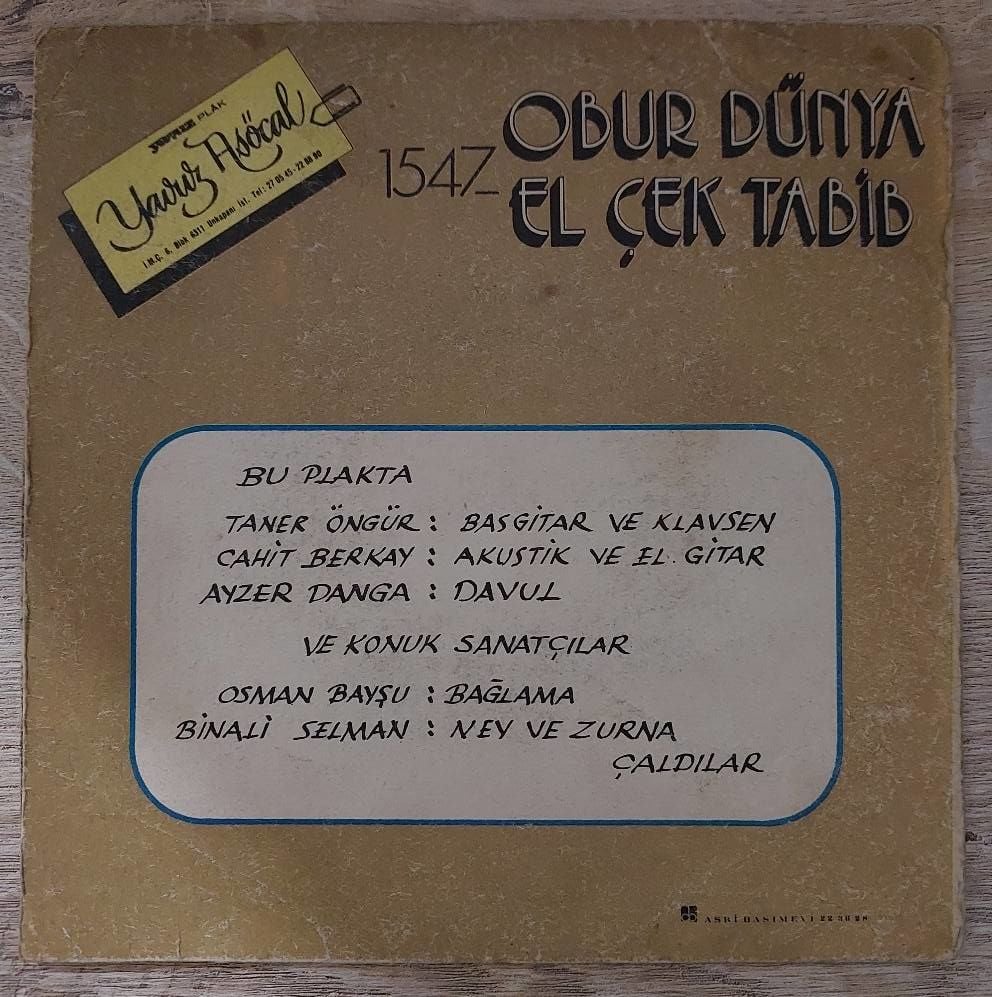 PLAK
Yavuz Asöcal
İ.M.Ç. 6. Blok 6311 Unkapanı İst. Tel: 27 05 45 - 22 88 80
1547
OBUR DÜNYA
EL ÇEK TABİB
BU PLAKTA
TANER ÖNGÜR : BASGİTAR VE KLAVSEN
CAHİT BERKAY : AKUSTİK VE EL. GİTAR
AYZER DANGA : DAVUL
VE KONUK SANATÇILAR
OSMAN BAYŞU : BAĞLAMA
BİNALİ SELMAN : NEY VE ZURNA
ÇALDILAR
ASRİ BASIMEVİ 22 36 28